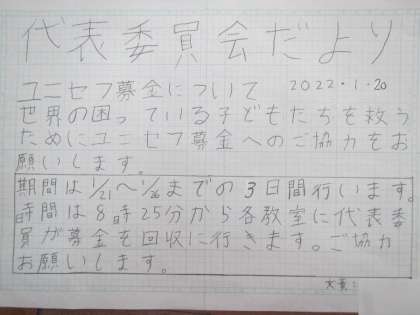 代表委員会だより
ユニセフ募金について 2022.1.20
世界の困っている子どもたちを救う
ためにユニセフ募金へのご協力をお
願いします。
期間は1/21〜1/26までの3日間行います。
時間は8時25分から各教室に代表委
員が募金を回収に行きます。ご協力
お願いします。
文責: